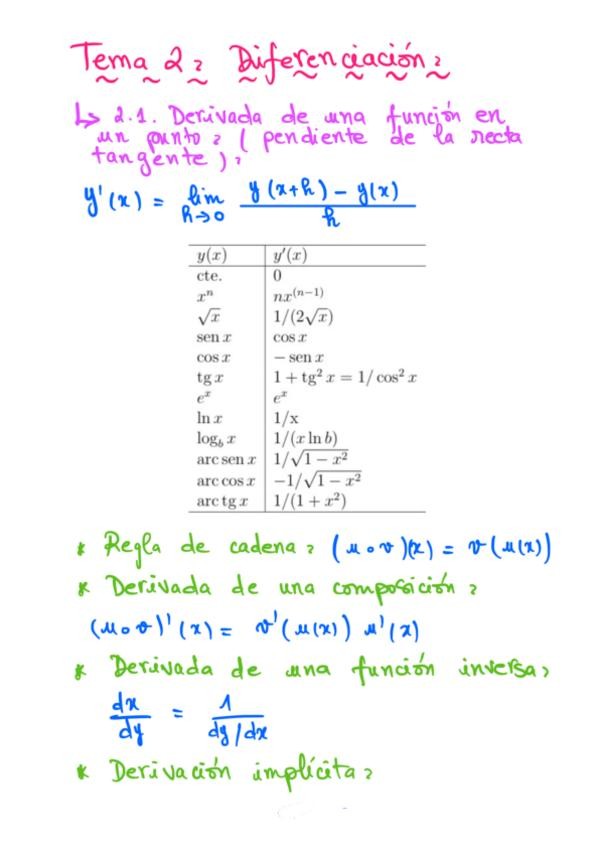 Tema 2: Diferenciación:
↳ 2.1. Derivada de una función en
un punto: (pendiente de la recta
tangente):
y'(x) = lim h→0 (y(x+h) - y(x))/h
y(x) | y′(x)
cte. | 0
xⁿ | nx⁽ⁿ⁻¹⁾
√x | 1/(2√x)
sen x | cos x
cos x | − sen x
tg x | 1 + tg² x = 1/ cos² x
eˣ | eˣ
ln x | 1/x
log_b x | 1/(x ln b)
arc sen x | 1/√(1 − x²)
arc cos x | −1/√(1 − x²)
arc tg x | 1/(1 + x²)
* Regla de cadena: (u∘v)(x) = v(u(x))
* Derivada de una composición:
(u∘v)'(x) = v'(u(x)) u'(x)
* Derivada de una función inversa:
dx/dy = 1/(dy/dx)
* Derivación implícita: